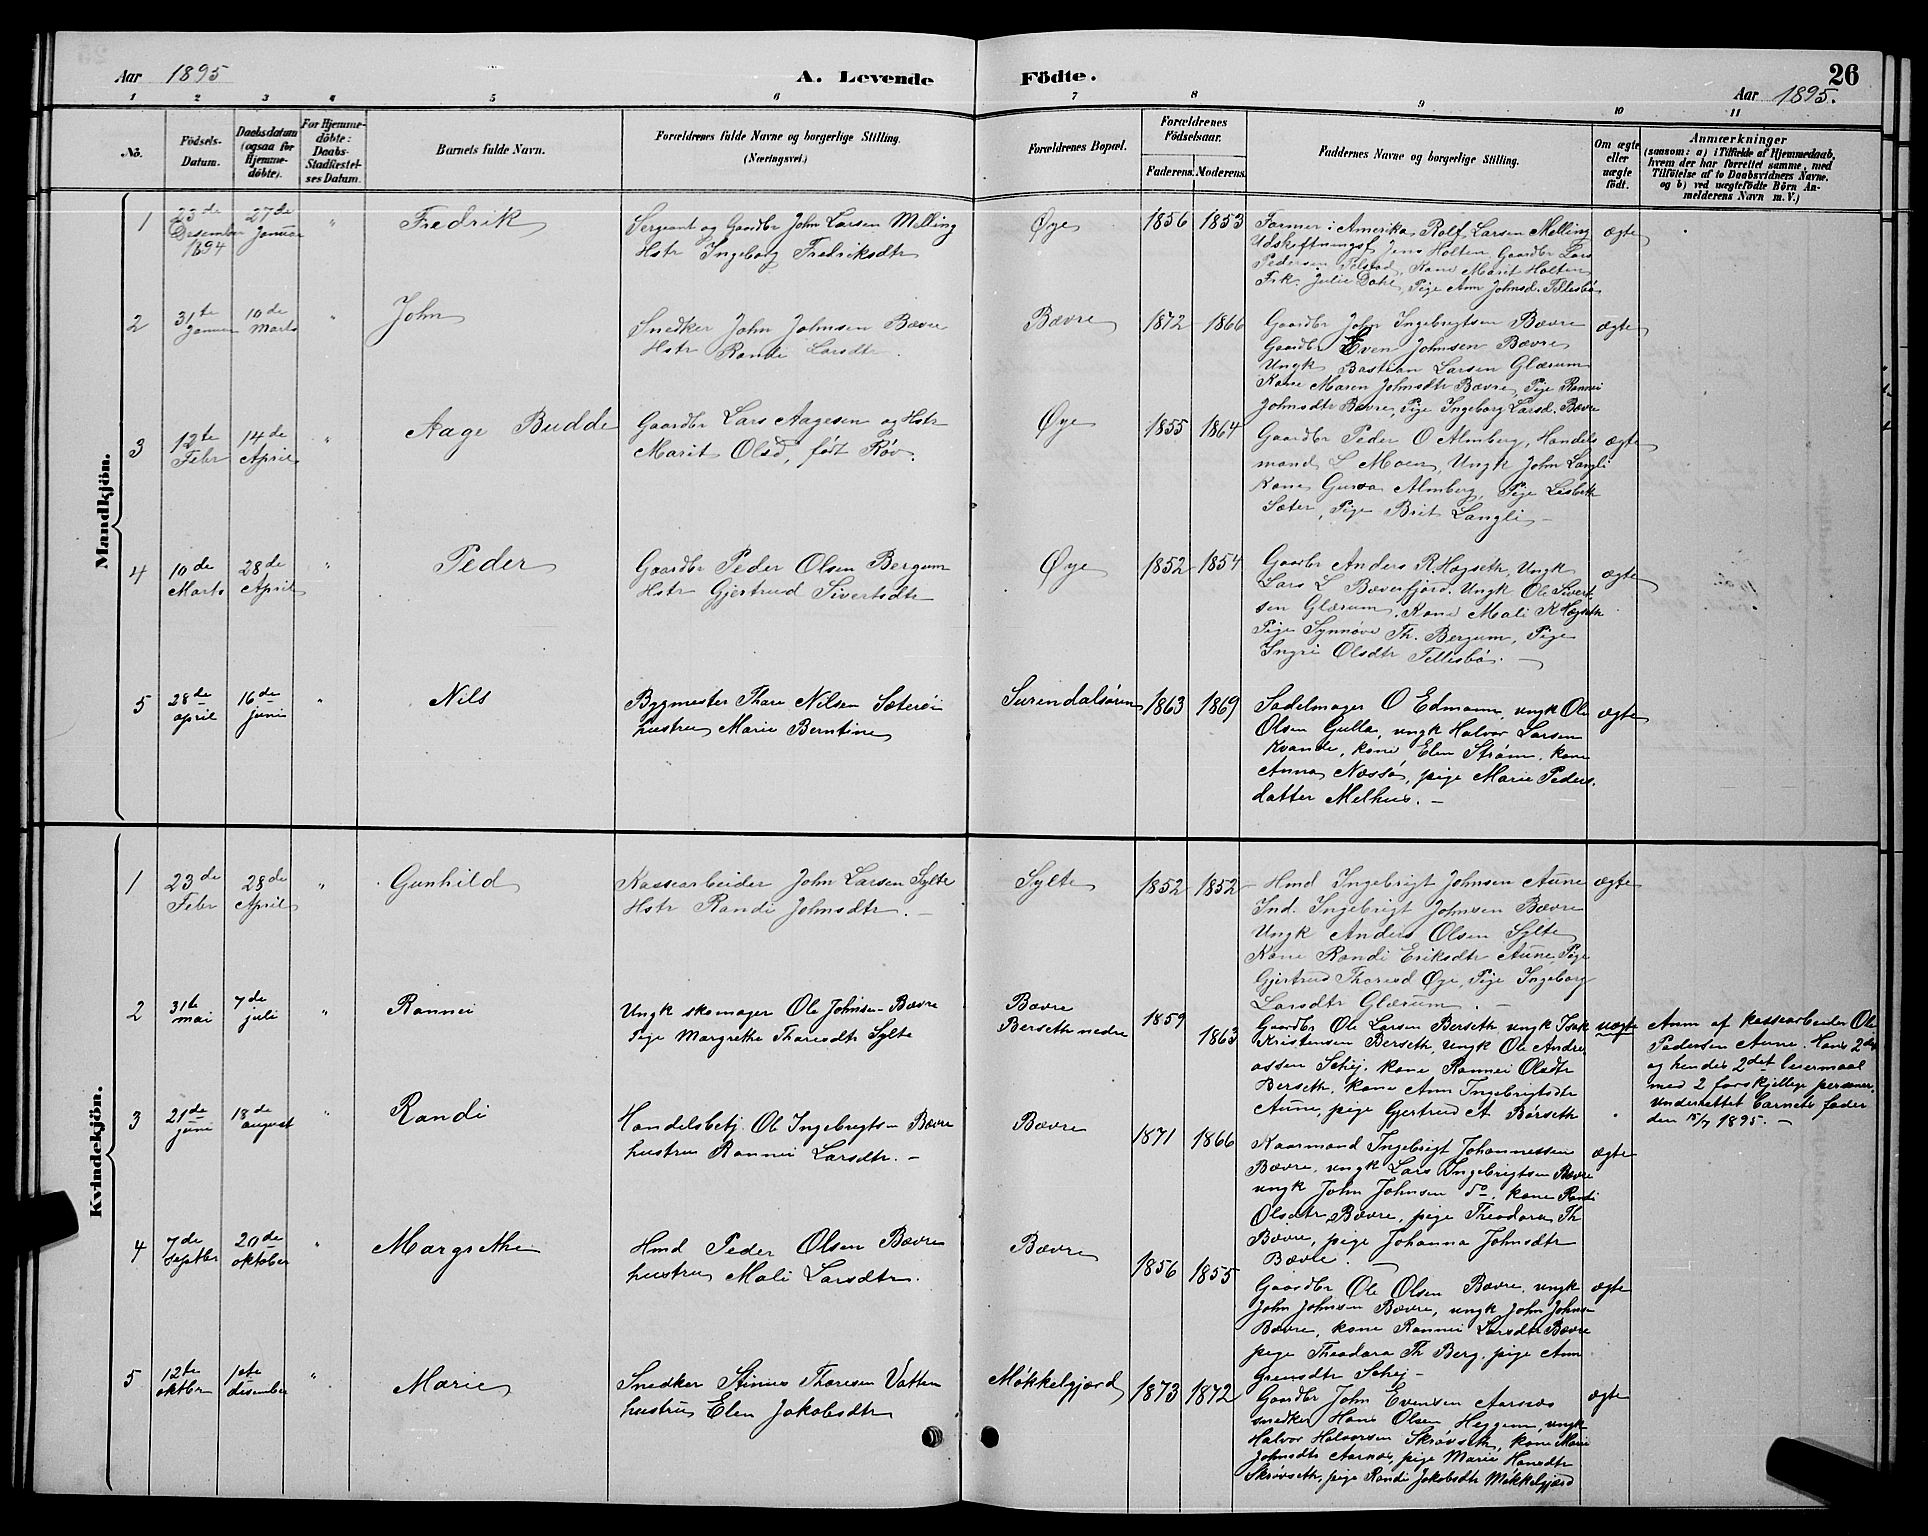 Aar 1895
A. Levende Födte.
26
Aar 1895.
1 2 3 4 5 6 7 8 9 10 11
No.
Födsels-Datum.
Daabsdatum (ogsaa for Hjemme-döbte).
For Hjemme-döbte: Daabs-Stadfæstel-ses Datum.
Barnets fulde Navn.
Forældrenes fulde Navne og borgerlige Stilling.
(Næringsvei.)
Forældrenes Bopæl.
Forældrenes Födselsaar.
Faderens. Moderens.
Faddernes Navne og borgerlige Stilling.
Om ægte eller uægte födt.
Anmærkninger
(saasom: a) i Tilfælde af Hjemmedaab,
hvem der har forrettet samme, med
Tilföielse af to Daabsvidners Navne.
og b) ved uægtefödte Börn An-
melderens Navn m. V.)
Mandkjön.
1
23de Desember 1894
27de Januar
"
Fredrik
Sergeant og Gaardbr John Larsen Melling
Hstr Ingeborg Fredriksdtr
Øye
1856
1853
Farmer i Amerika Rolf Larsen Melling
Udskiftningsf Jens Holten, Gaardbr Lars
Pedersen Polstad, Kone Marit Holten
Frk. Julie Dahl, Pige Ann Johnsd. Tellesbø
ægte
2
31te Januar
10de Marts
"
John
Snedker John Johnsen Bævre
Hstr Randi Larsdtr.
Bævre
1872
1866
Gaardbr John Ingebregtsen Bævre
Gaardbr Even Johnsen Bævre
Ungk Bastian Larsen Glærum
Kone Maren Johnsdtr Bævre, Pige Rannei
Johnsdtr Bævre, Pige Ingeborg Larsd. Bævre
ægte
3
12te Febr
14de April
"
Aage Budde
Gaardbr Lars Aagesen og Hstr
Marit Olsd, født Røv.
Øye
1855
1864
Gaardbr Peder O Almberg, Handels
mand L Moen, Ungk John Langli
Kone Guroa Almberg, Pige Lisbeth
Sæter, Pige Brit Langli –
ægte
4
10de Marts
28de April
"
Peder
Gaardbr Peder Olsen Bergum
Hstr Gjertrud Sivertsdtr
Øye
1852
1854
Gaardbr Anders R Høgseth, Ungk
Lars L Bæverfjord. Ungk Ole Sivert
sen Glærum. Kone Mali K Høgseth
Pige Synnøve Th. Bergum, Pige
Ingri Olsdtr Tellesbø. –
ægte
5
28de april
16de juni
"
Nils
Bygmester Thore Nilsen Sæterøi
hustru Marie Berntine
Surendalsøren
1863
1869
Sadelmager O Edmann, ungk Ole
Olsen Gulla, ungk Halvor Larsen
Kvande, kone Elen Strøm, kone
Anna Næssø, pige Marie Peders
datter Melhus. –
ægte
Kvindekjön.
1
23de Febr
28de April
"
Gunhild
Kassearbeider John Larsen Sylte
Hstr Randi Johnsdtr. –
Sylte
1852
1852
Hmd Ingebrigt Johnsen Aune
Ind. Ingebrigt Johnsen Bævre
Ungk Anders Olsen Sylte
Kone Randi Eriksdtr Aune, Pige
Gjertrud Thoresd Øye, Pige Ingeborg
Larsdtr Glærum. –
ægte
2
31te mai
7de juli
"
Rannei
Ungk skomager Ole Johnsen Bævre
Pige Margrethe Thoresdtr Sylte
Bævre
Berseth nedre
1859
1863
Gaardbr Ole Larsen Berseth, ungk Isak
Kristensen Berseth, ungk Ole Andre
assen Schej, kone Rannei Olsdtr
Berseth, kone Ann Ingebrigtsdtr
Aune, pige Gjertrud A Berseth
uægte
Anm af kassearbeider Ole
Pedersen Aune. Hans 2det
og hendes 2det leiermaal
med 2 forskjellige personer.
Underrettet barnets fader
den 15/7 1895. –
3
21de juni
18de august
"
Randi
Handelsbetj. Ole Ingebregtsen Bævre
hustru Rannei Larsdtr. –
Bævre
1871
1866
Kaarmand Ingebrigt Johannessen
Bævre, ungk Lars Ingebrigtsen Bævre
ungk John Johnsen do. kone Randi
Olsdtr Bævre, pige Theodora Th
Bævre, pige Johanna Johnsdtr
Bævre. –
ægte
4
7de septbr
20de oktober
"
Margrethe
Hmd Peder Olsen Bævre
hustru Mali Larsdtr.
Bævre
1856
1855
Gaardbr Ole Olsen Bævre, ungk
John Johnsen Bævre, ungk John Johnsen
Bævre, kone Rannei Larsdtr Bævre
pige Theodora Th Berg, pige Ann
Schej –
ægte
5
12te oktbr
1ste desember
"
Marie
Snedker Stinius Thoresen Vatten
hustru Elen Jakobsdtr
Møkkelgjerd
1873
1872
Gaardbr John Evensen Aarnes
snedker Hans Olsen Heggem, ungk
Halvor Halvorsen Skrøvseth, kone Marie
Johnsdtr Aarnes, pige Marie Hansdtr
Skrøvseth, pige Randi Jakobsdtr Møkkelgjerd
ægte